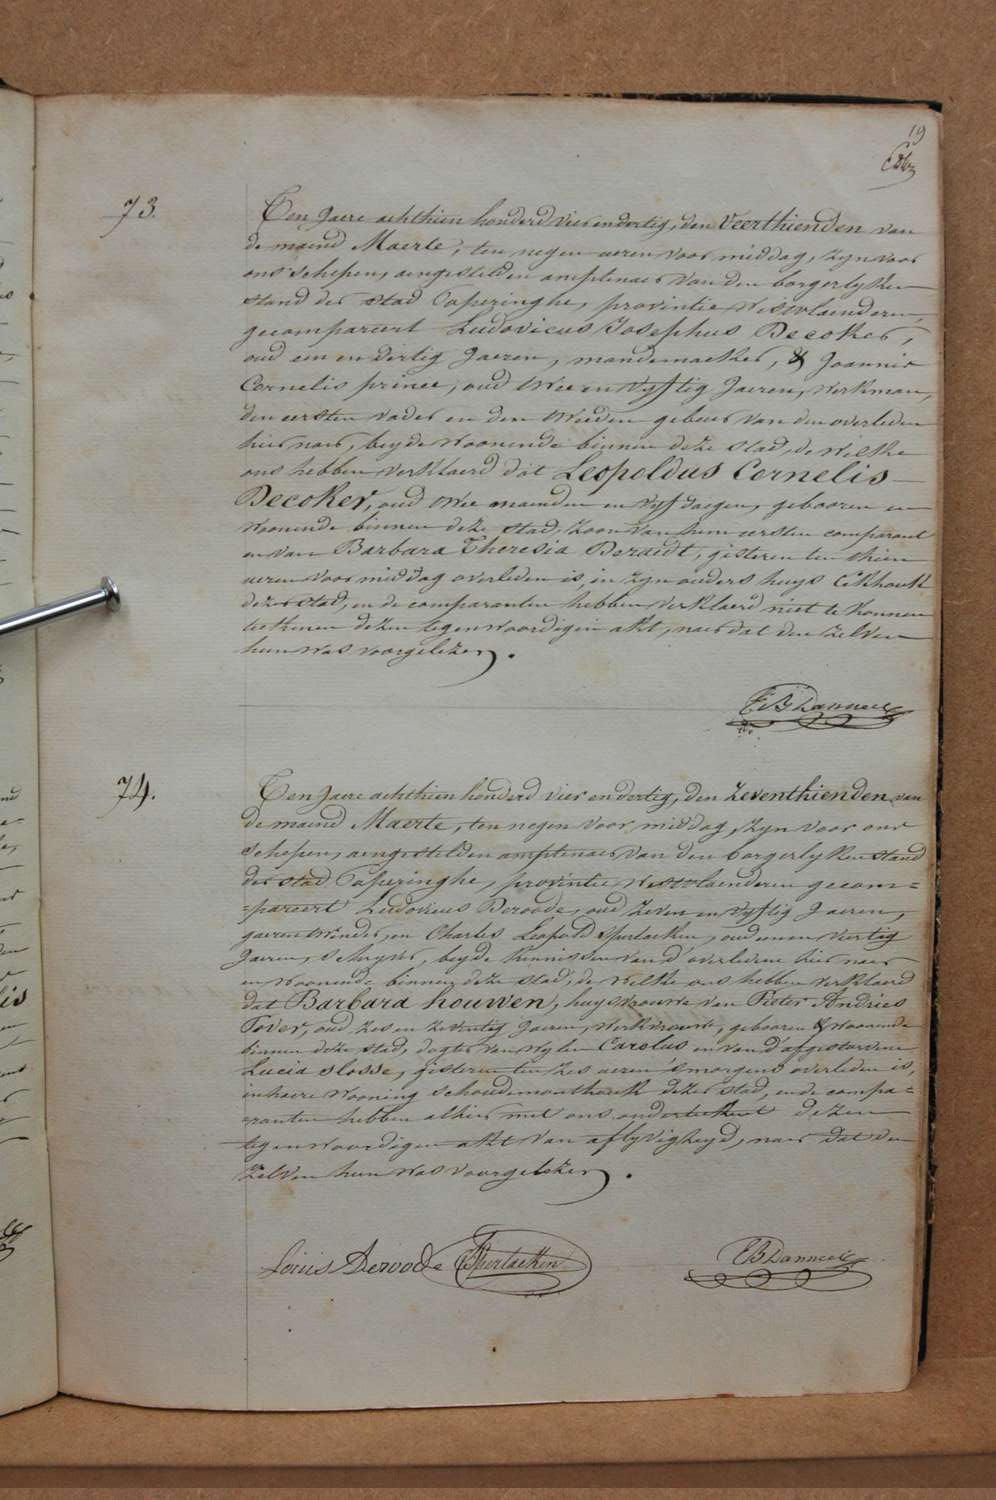 19
73.
Ten Jaere achthien honderd vier en dertig, den Veerthienden van
de maend Maerte, ten negen ueren voor middag, zyn voor
ons schepen, aengestelden amptenaer van den borgerlyken
stand der stad Poperinghe, provintie Westvlaenderen,
gecompareert Ludovicus Josephus Decoker,
oud een en dertig Jaeren, mandemaeker, & Joannis
Cornelis prince, oud twee en vyftig Jaeren, werkman,
den eersten vader en den tweeden gebeur van den overleden
hier naer, beyde woonende binnen deze stad, de welke
ons hebben verklaerd dat Leopoldus Cornelis
Decoker, oud twee maenden en vyf daegen, gebooren en
woonende binnen deze stad, zoon van hem eersten comparant
en van Barbara Theresia Deraedt, gisteren ten thien
ueren voor middag overleden is, in zyn ouders huys Eekhoutt
dezer stad, en de comparanten hebben verklaerd niet te konnen
teekenen dezen tegenwoordigen akt, naer dat den zelven
hun was voorgelezen.
74.
Ten Jaere achthien honderd vier en dertig, den zeventhienden van
de maend Maerte, ten negen voor middag, zyn voor ons
schepen, aengestelden amptenaer van den borgerlyken stand
der stad Poperinghe, provintie Westvlaenderen gecom=
=pareert Ludovicus Deroode, oud zeven en vyftig Jaeren,
gaerentwinder, en Charles Leopold Sperlaeken, oud een en veertig
Jaeren, schryver, beyde kennissen van d'overledene hier naer
en woonende binnen deze stad, de welke ons hebben verklaerd
dat Barbara houwen, huysvrouwe van Pieter Andries
Tover, oud zes en zeventig Jaeren, werkvrouw, gebooren & woonende
binnen deze stad, dogter van wylen Carolus en van d'afgestorvene
Lucia slosse, gisteren ten zes ueren 's morgens overleden is,
in haere wooning schoudemonthoek dezer stad, en de compa=
=ranten hebben alhier met ons onderteekent dezen
tegenwoordigen akt van aflyvigheyd, naer dat den
zelven hun was voorgelezen.
Louis Deroode Sperlaeken